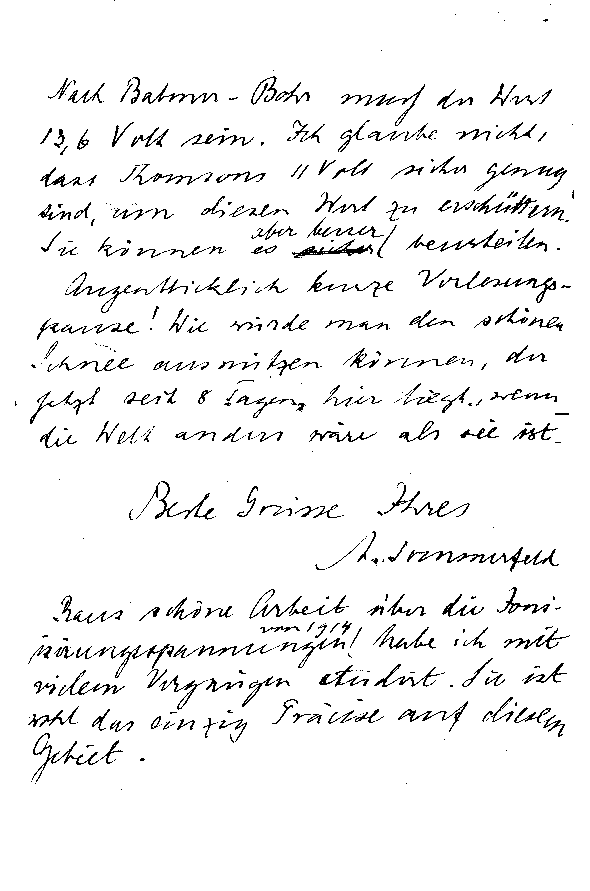 Nach Balmer-Bohr muss der Wert
13,6 Volt sein. Ich glaube nicht,
dass Thomsons 11 Volt sicher genug
sind, um diesen Wert zu erschüttern.
aber besser
Sie können es sicher beurteilen.
Augenblicklich kurze Vorlesungs-
pause! Wie würde man den schönen
Schnee ausnützen können, der
jetzt seit 8 Tagen, hier liegt, wenn
die Welt anders wäre als sie ist.
Beste Grüsse Ihres
A. Sommerfeld
schöne Arbeit über die Joni-
von 1914
sierungsspannungen habe ich mit
vielem Vergnügen studirt. Sie ist
wohl das einzig Präcise auf diesem
Gebiet.